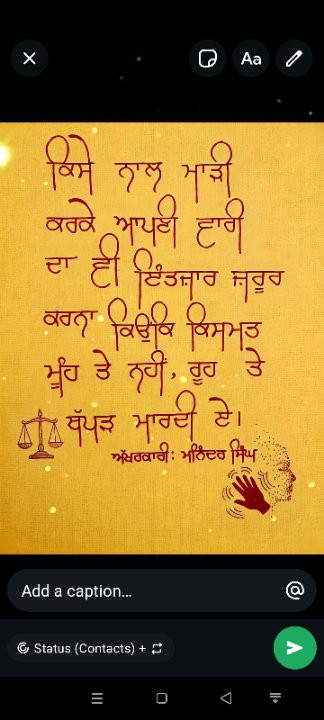 Aa
ਕਿਸੇ ਨਾਲ ਮਾੜੀ
ਕਰਕੇ ਆਪਣੀ ਵਾਰੀ
ਦਾ ਵੀ ਇੰਤਜ਼ਾਰ ਜ਼ਰੂਰ
ਕਰਨਾ ਕਿਉਂਕਿ ਕਿਸਮਤ
ਮੂੰਹ ਤੇ ਨਹੀਂ, ਰੂਹ ਤੇ
ਥੱਪੜ ਮਾਰਦੀ ਏ।
ਅੱਖਰਕਾਰੀ: ਮਨਿੰਦਰ ਸਿੰਘ
Add a caption...
Status (Contacts) +